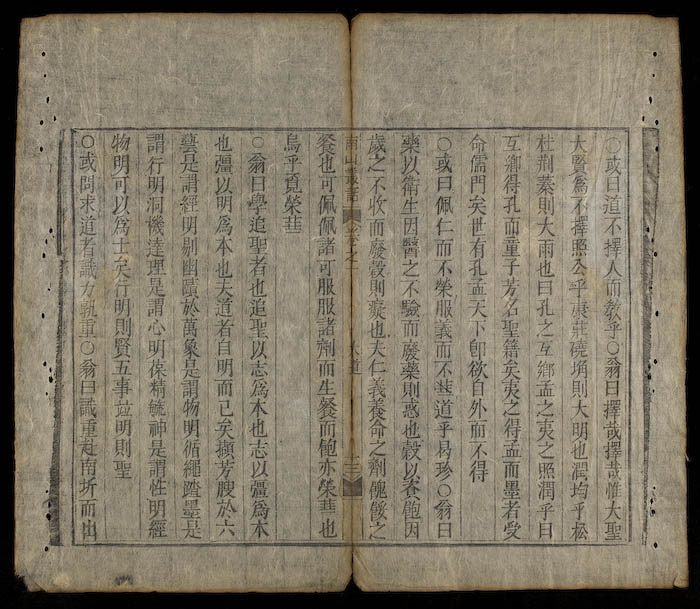 ○或曰道不擇人而教乎○翁曰擇哉擇哉惟大聖
大賢爲不擇照公乎康莊磽埆則大明也潤均乎松
杜荆蓁則大雨也曰孔之互鄉孟之夷之照潤乎曰
互鄉得孔而童子芳名聖籍矣夷之得孟而墨者受
命儒門矣世有孔孟天下卽欲自外而不得
○或曰佩仁而不榮服義而不韮道乎曷珍○翁曰
藥以衛生因醫之不驗而廢藥則惑也穀以養飽因
歲之不收而廢穀則癡也夫仁義養命之劑餽餒之
餐也可佩佩諸可服服諸劑而生餐而飽亦榮韮也
烏乎覓榮韮
○翁曰學追聖者也追聖以志爲本也志以彊爲本
也彊以明爲本也夫道者自明而已矣擷芳腴於六
藝是謂經明剔幽賾於萬象是謂物明循繩蹈墨是
謂行明洞機達理是謂心明葆精毓神是謂性明經
物明可以爲士矣行明則賢五事竝明則聖
○或問求道者識力孰重○翁曰識重赴南圻而出